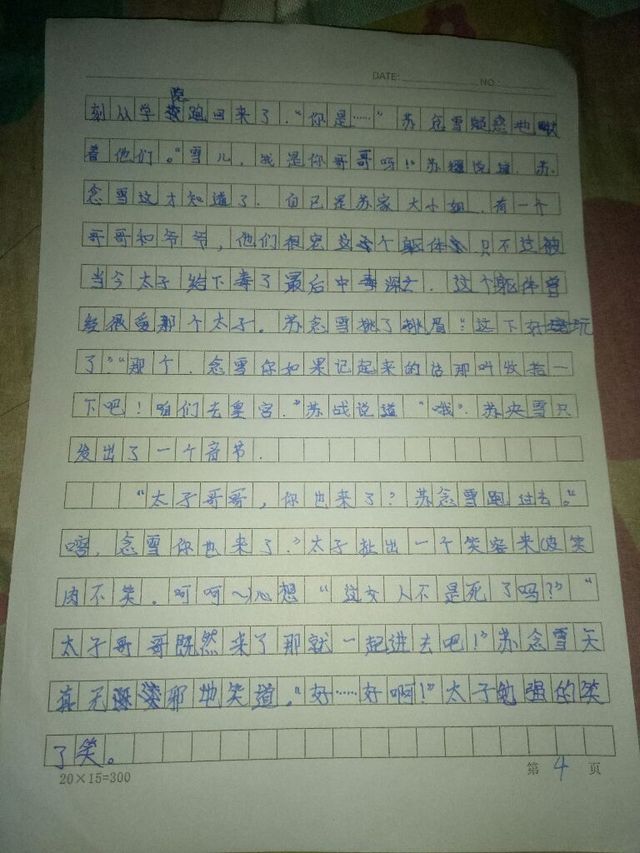 DATE: NO
院
刻从学跑回来了.“你是……”苏念雪疑惑地瞅
着他们。“雪儿,我是你哥哥吗!”苏说道.苏
念雪这才知道了.自已是苏家大小姐.有一个
哥哥和爷爷,他们很宠这个躯体只不过被
当今太子给下毒了最后中毒深亡.这个躯体曾
经很爱那个太子。苏念雪挑了挑眉:“这下好玩
了”“那个.念雪你如果记起来的话那叫收拾一
下吧!咱们去皇宫.”苏战说道“哦”.苏央雪只
发出了一个音节.
“太子哥哥,你也来了?苏念雪跑过去。”
嗯.念雪你也来了.”太子扯出一个笑容来(皮笑
肉不笑.呵呵~心想“这女人不是死了吗?”“
太子哥哥既然来了那就一起进去吧!”苏念雪天
真无邪地笑道.“好……好啊!”太子勉强的笑
了笑。
20×15=300 第 4 页